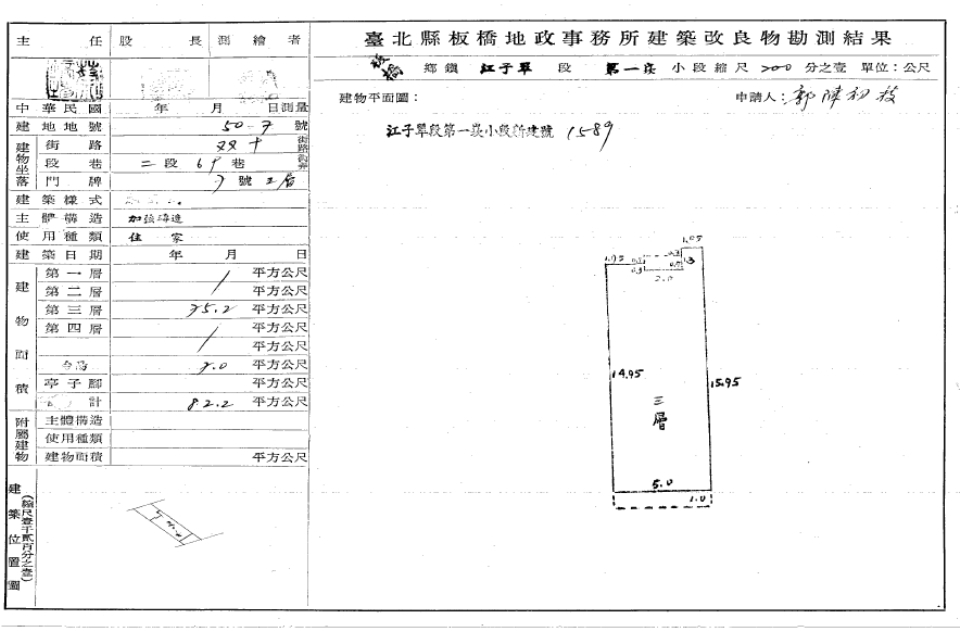 臺北縣板橋地政事務所建築改良物勘測結果
主任 股長 測繪者
板橋 鄉鎮 江子翠 段 第一崁 小段 縮尺 200 分之壹 單位：公尺
中華民國 年 月 日測量
建物平面圖：
申請人：郭陳初枝
建地地號 50-7 號
江子翠段第一崁小段新建號 1589
建物坐落
街路 双十 街路
段巷 二段 69 巷
門牌 7 號 三層
建築樣式
主體構造 加強磚造
使用種類 住家
建築日期 年 月 日
建物面積
第一層 / 平方公尺
第二層 平方公尺
第三層 75.2 平方公尺
第四層 / 平方公尺
平方公尺
7.0 平方公尺
亭子腳 平方公尺
計 82.2 平方公尺
附屬建物
主體構造
使用種類
建物面積 平方公尺
建築位置圖
(縮尺壹千貳百分之壹)
1.05
1.3
2.0
14.95
15.95
三層
5.0
1.0